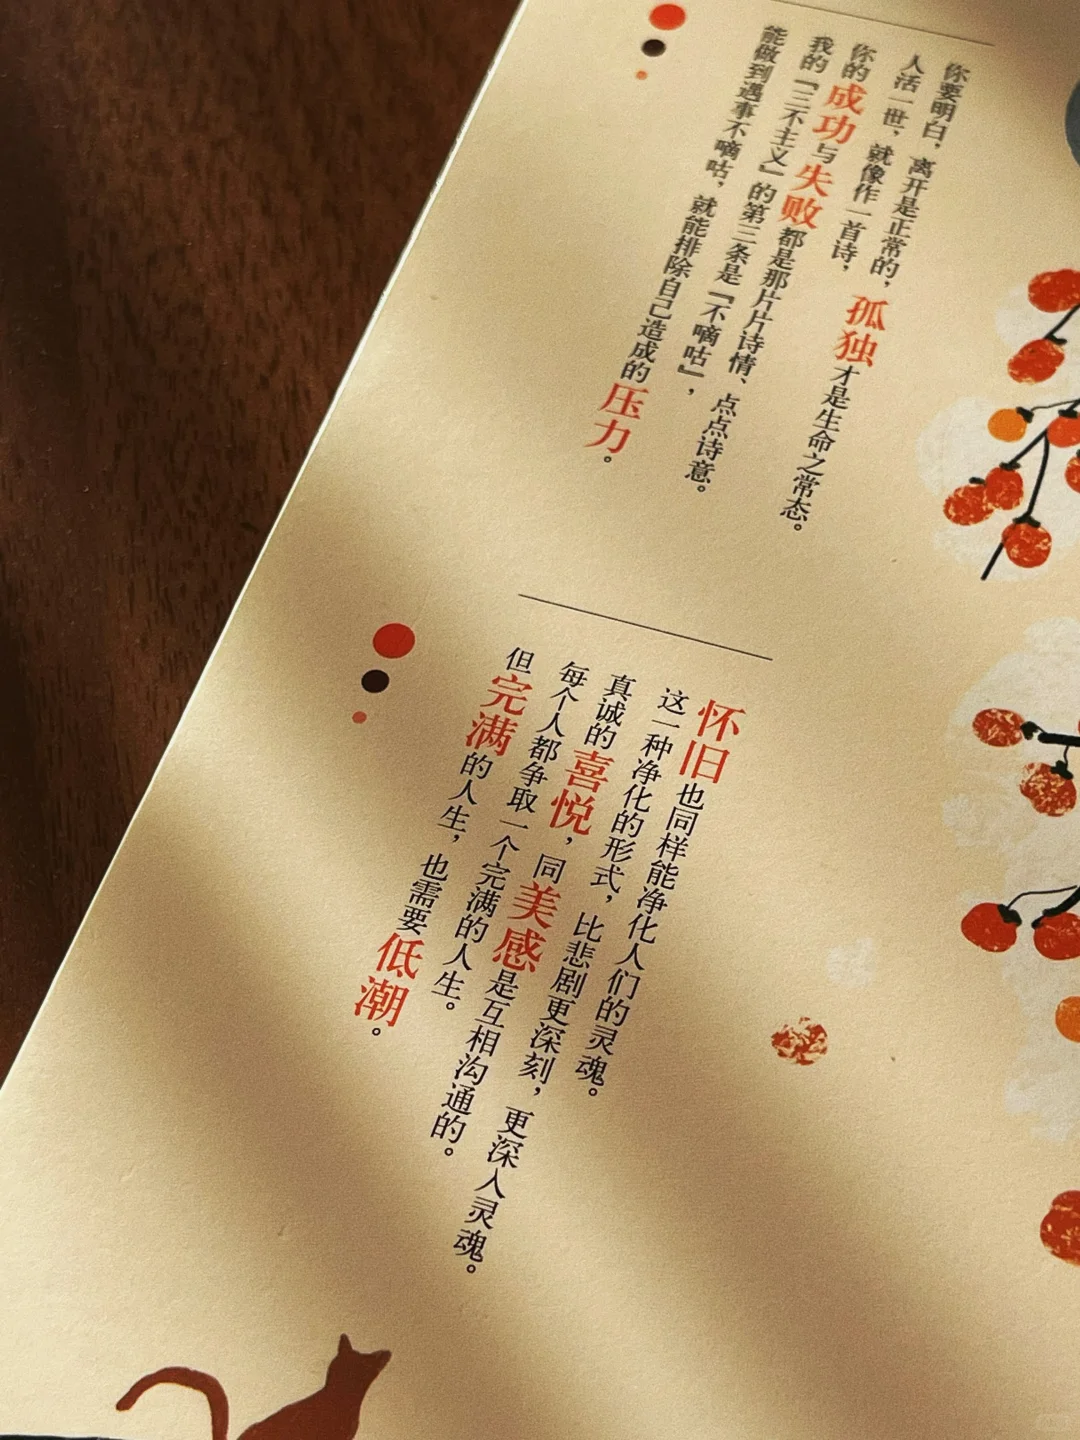 你要明白，离开是正常的，孤独才是生命之常态。
人活一世，就像作一首诗，
你的成功与失败都是那片片诗情、点点诗意。
我的『三不主义』的第三条是『不嘀咕』，
能做到遇事不嘀咕，就能排除自己造成的压力。
怀旧也同样能净化人们的灵魂。
这一种净化的形式，比悲剧更深刻，更深入灵魂。
真诚的喜悦，同美感是互相沟通的。
每个人都争取一个完满的人生。
但完满的人生，也需要低潮。